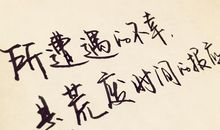 所遭遇的不幸，
其荒废时间的报应